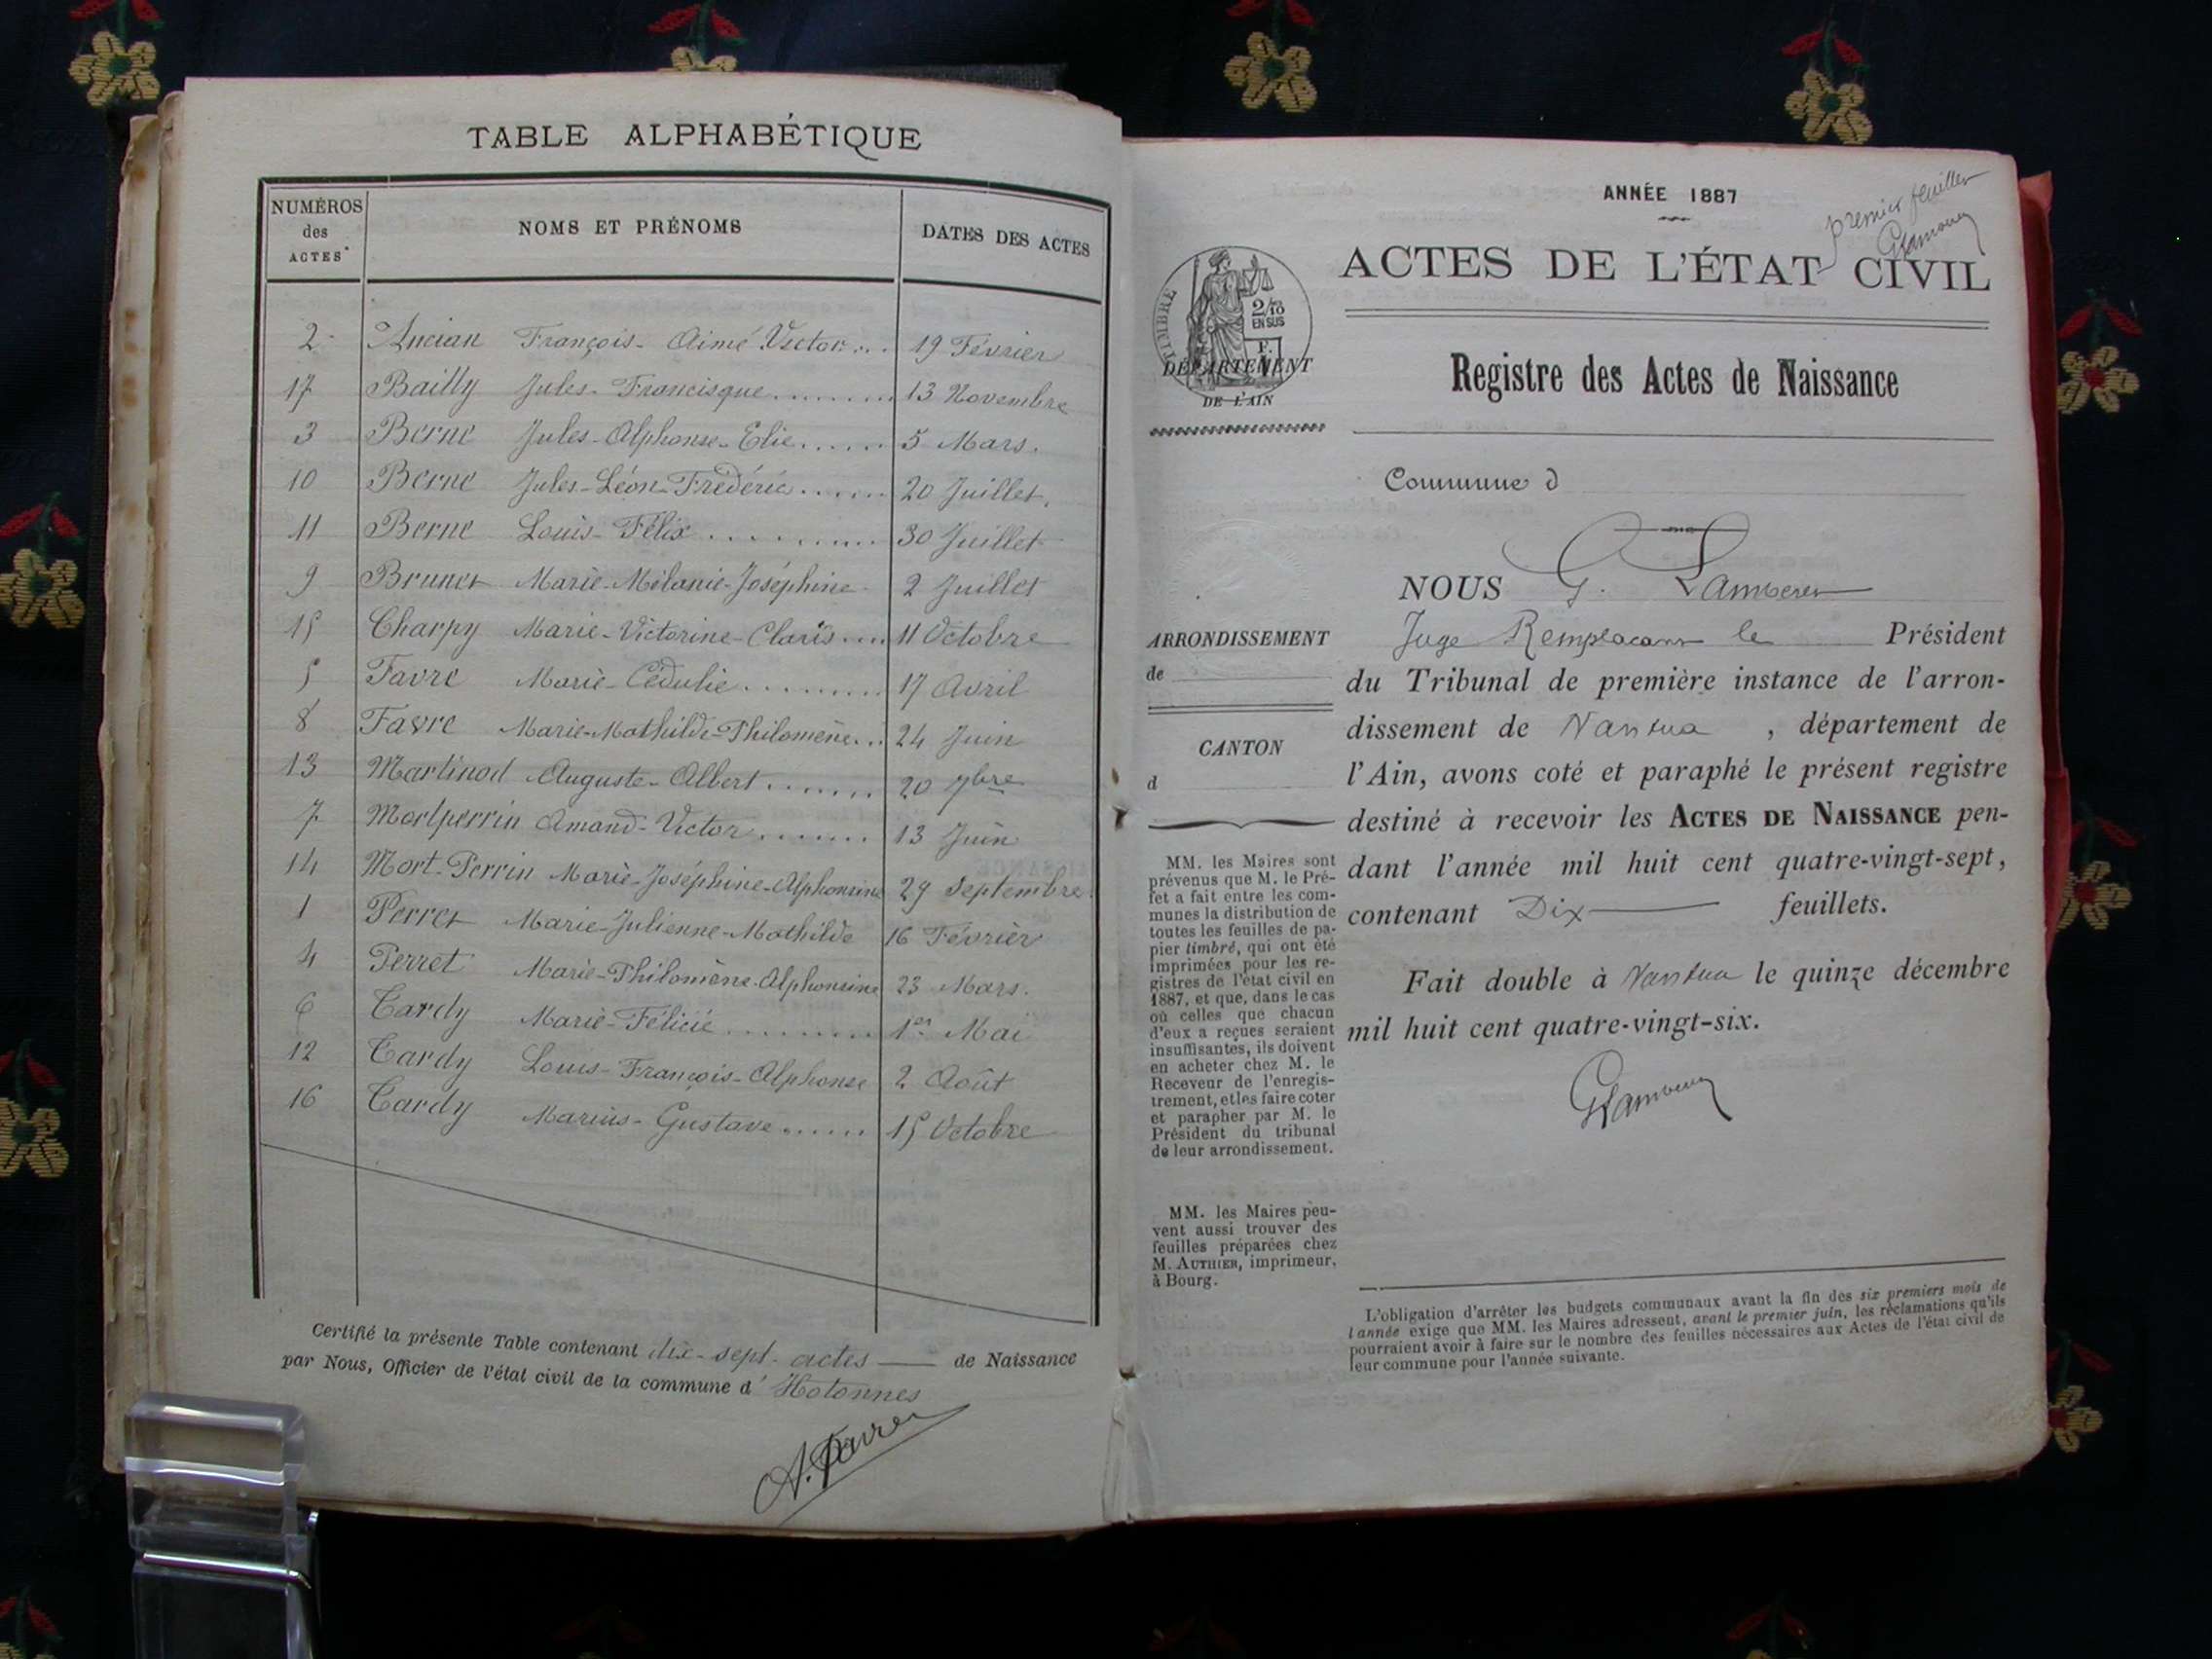 TABLE ALPHABÉTIQUE
NUMÉROS des ACTES
NOMS ET PRÉNOMS
DATES DES ACTES
2 Ancian François-Aimé Victor 19 Février
17 Bailly Jules-Francisque 13 Novembre
3 Berne Jules-Alphonse-Elie 5 Mars.
10 Berne Jules-Léon-Frédéric 20 Juillet.
11 Berne Louis-Félix 30 Juillet
9 Brunet Marie-Mélanie-Joséphine 2 Juillet
15 Charpy Marie-Victorine-Claris 11 Octobre
5 Favre Marie-Cédulie 17 Avril
8 Favre Marie-Mathilde-Philomène 24 Juin
13 Martinod Auguste-Albert 20 7bre
7 Mortperrin Amand-Victor 13 Juin
14 Mort-Perrin Marie-Joséphine-Alphonsine 29 Septembre
1 Perret Marie-Julienne-Mathilde 16 Février
4 Perret Marie-Philomène-Alphonsine 23 Mars.
6 Tardy Marie-Félicie 1er Mai
12 Tardy Louis-François-Alphonse 2 Août
16 Tardy Marius-Gustave 15 Octobre
Certifié la présente Table contenant dix-sept actes de Naissance
par Nous, Officier de l'état civil de la commune d' Hotonnes
ANNÉE 1887
premier feuillet
ACTES DE L'ÉTAT CIVIL
TIMBRE
2/10
EN SUS
DÉPARTEMENT
DE L'AIN
Registre des Actes de Naissance
Commune d
NOUS G. Lambert
Juge Remplaçant le Président
du Tribunal de première instance de l'arron-
dissement de Nantua , département de
l'Ain, avons coté et paraphé le présent registre
destiné à recevoir les ACTES DE NAISSANCE pen-
dant l'année mil huit cent quatre-vingt-sept,
contenant Dix feuillets.
Fait double à Nantua le quinze décembre
mil huit cent quatre-vingt-six.
ARRONDISSEMENT
de
CANTON
d
MM. les Maires sont
prévenus que M. le Pré-
fet a fait entre les com-
munes la distribution de
toutes les feuilles de pa-
pier timbré, qui ont été
imprimées pour les re-
gistres de l'état civil en
1887, et que, dans le cas
où celles que chacun
d'eux a reçues seraient
insuffisantes, ils doivent
en acheter chez M. le
Receveur de l'enregis-
trement, et les faire coter
et parapher par M. le
Président du tribunal
de leur arrondissement.
MM. les Maires peu-
vent aussi trouver des
feuilles préparées chez
M. AUTHIER, imprimeur,
à Bourg.
L'obligation d'arrêter les budgets communaux avant la fin des six premiers mois de
l'année exige que MM. les Maires adressent, avant le premier juin, les réclamations qu'ils
pourraient avoir à faire sur le nombre des feuilles nécessaires aux Actes de l'état civil de
leur commune pour l'année suivante.